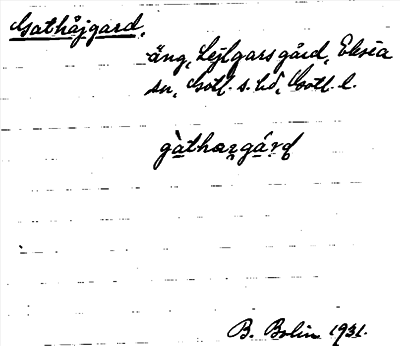 Gathåjgard.
äng, Lejlgars gård, Eksta
sn, Gotl. s. hd, Gotl. l.
gàthaʒgárd
B. Bolin 1931.